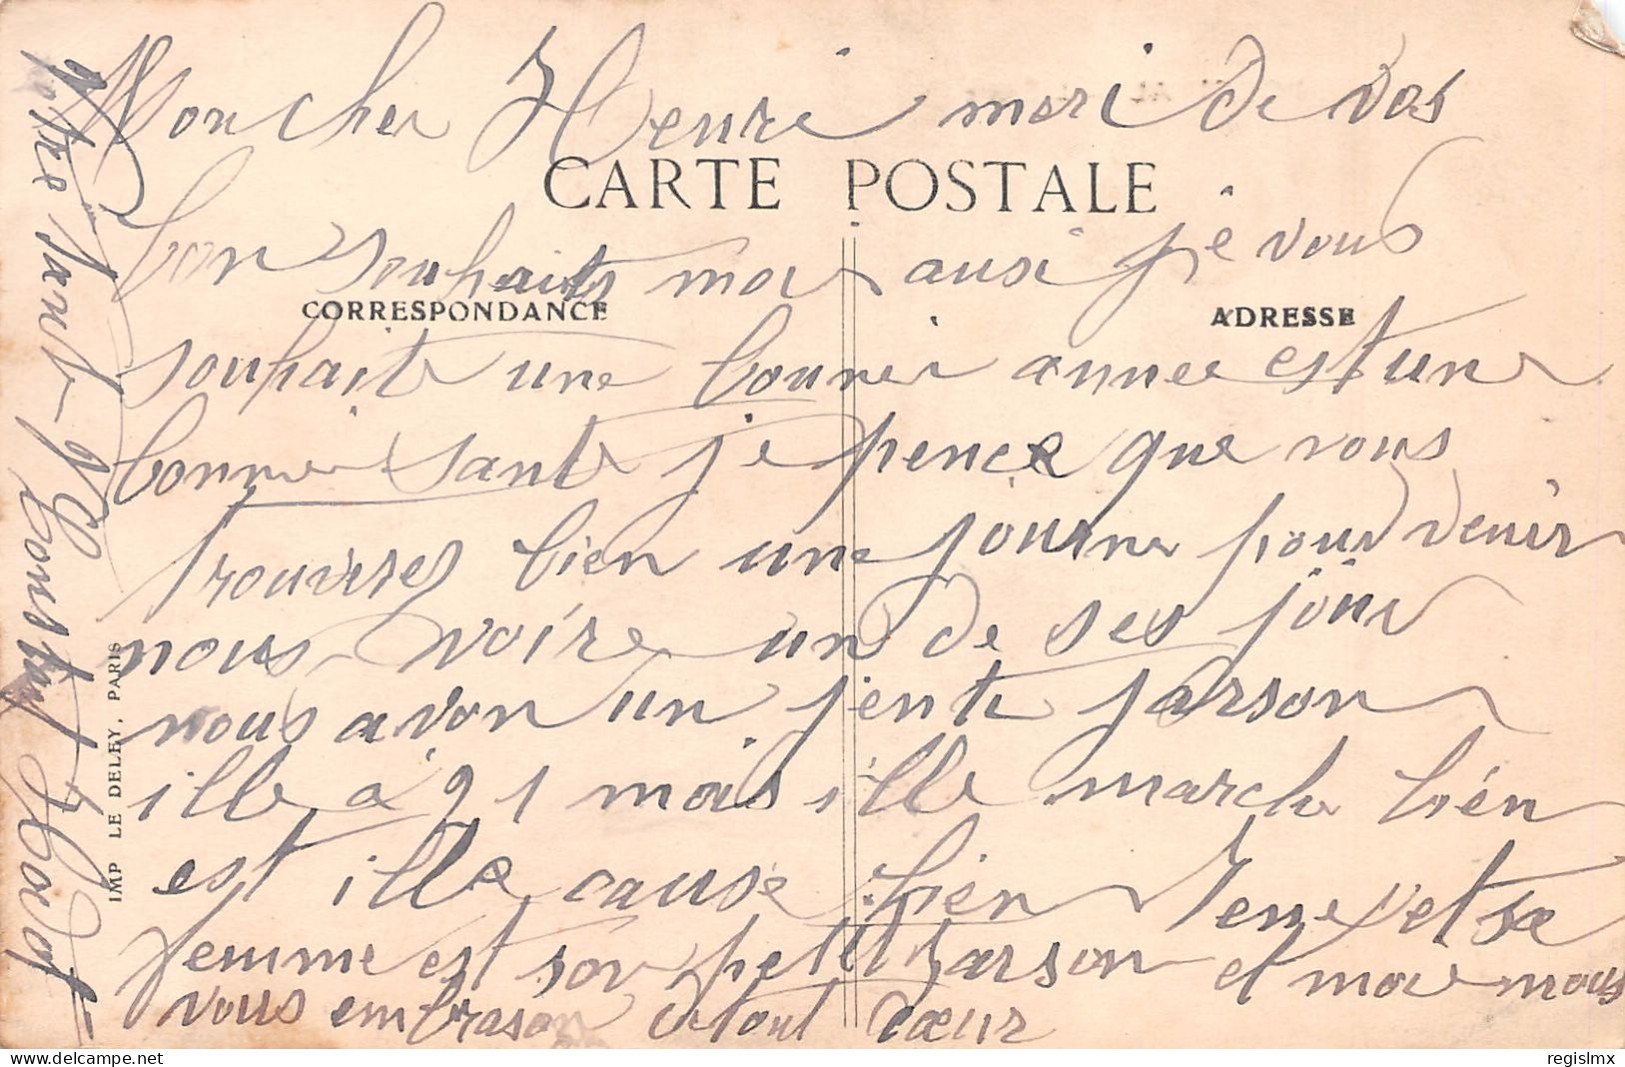 Mon cher Henri merci de vos
CARTE POSTALE
bon souhaits moi ausi je vous
CORRESPONDANCE
ADRESSE
souhaite une bonne année est une
bonne sante je pence que vous
trouveres bien une journe pour venir
nous voire un de ses jour
nous avon un jenti garson
ille à 21 mois ille marche bien
est ille cause bien et sa
femme est son petit garson et moi nous
vous embrason cœur
IMP LE DELEY, PARIS